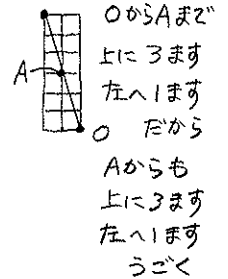 OからAまで
上に3ます
左へ1ます
だから
A
O
Aからも
上に3ます
左へ1ます
うごく